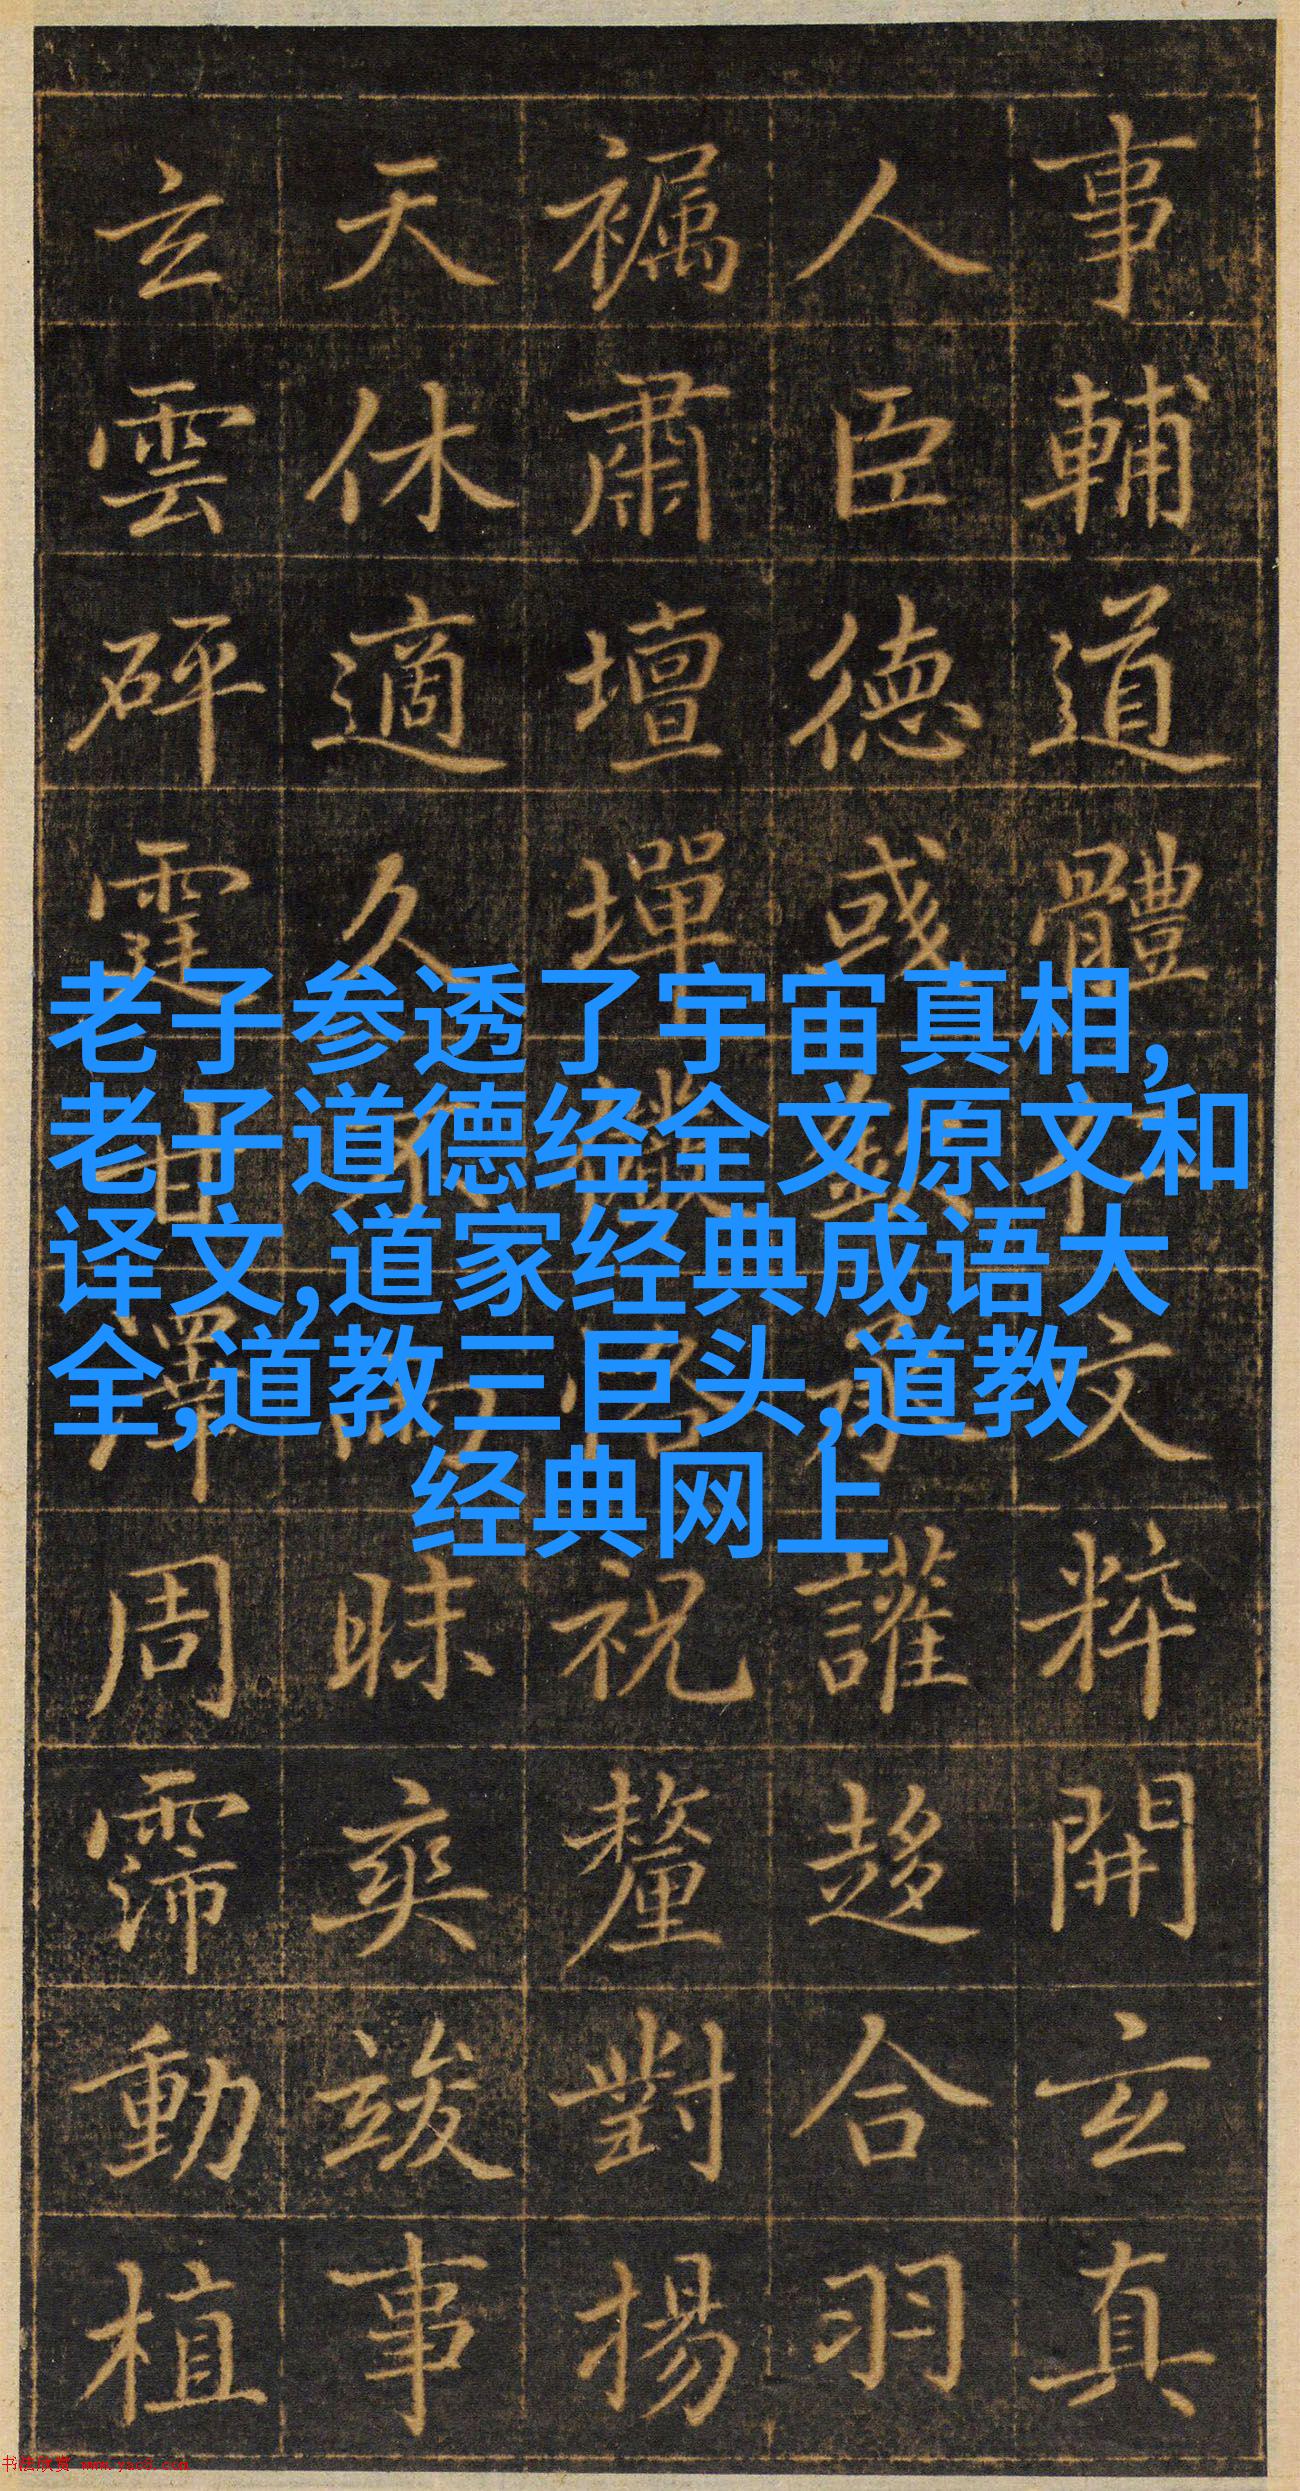 事輔道體文粹開玄真
人臣德彧承讙趍合羽
肅壇墠恪祝釐對揚
天休適久不雨昧爽竣事
玄雲砰霆甘澤周霈動植
老子参透了宇宙真相,
老子道德经全文原文和
译文,道家经典成语大
全,道教三巨头,道教
经典网上
书法欣赏 www.yac8.com